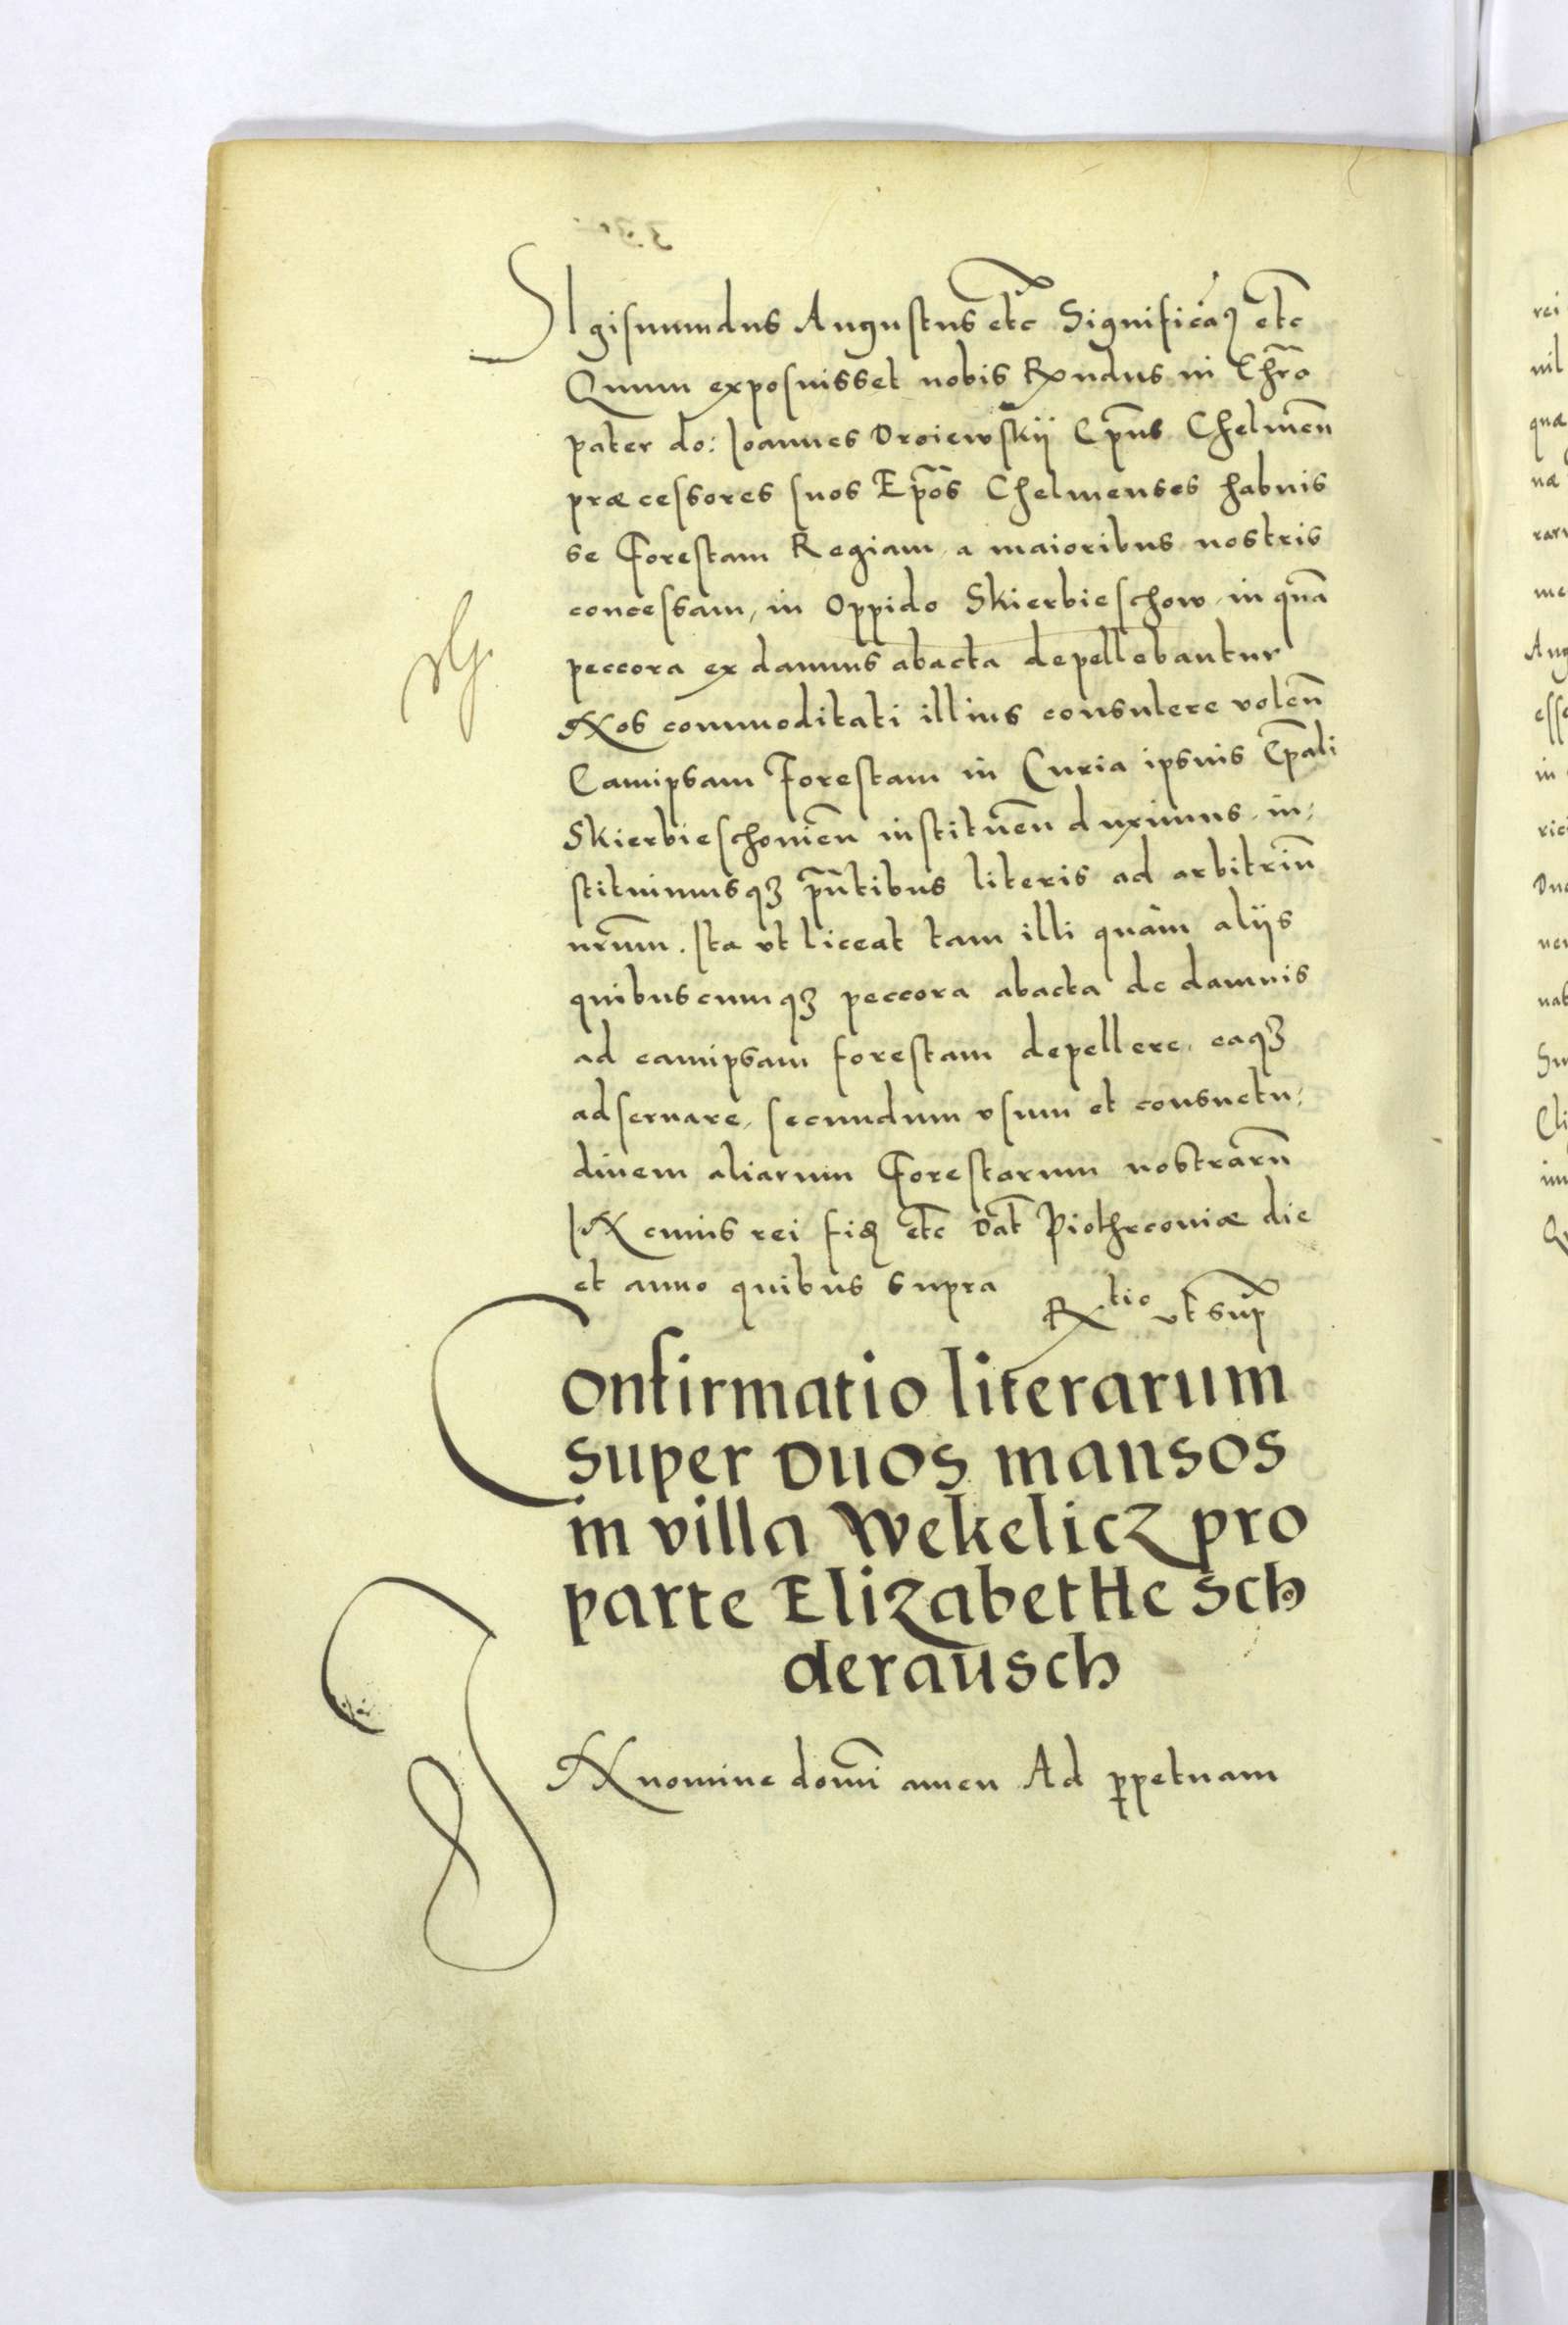 SIgismundus Augustus etc̃ Significaꝫ etc̃
Quum exposuisset nobis Rx̃ndus in Chr̃o
pater do: Ioannes Droiewskij Ep̃ns Chelmen̄
præcessores suos Ep̃os Chelmenses habuis
se Forestam Regiam a maioribus nostris
concessam, in Oppido Skierbieschow in qua᷃
peccora ex damnis abacta depellebantur
NOs commoditati illius consulere volen̄
Eamipsam Forestam in Curia ipsius Ep̃ali
Skierbieschouien̄ instituen̄ duximus, in:
stituimusqꝫ pn̄tibus literis ad arbitriū
nr̄um. Ita vt liceat tam illi quàm alijs
quibuscumqꝫ peccora abacta de damnis
ad eamipsam forestam depellere, eaqꝫ
adseruare, secundum vsum et consuetu:
dinem aliarum Forestarum nostrarū
IN cuius rei fiꝫ etc̃ Dat̃ Piothrcouiæ die
et anno quibus supra
Rx̃tio vt sup̃
Confirmatio literarum
super duos mansos
in villa Wekelicz pro
parte Elizabethe Sch
derausch
IN nomine domī amen Ad ꝑpetuam